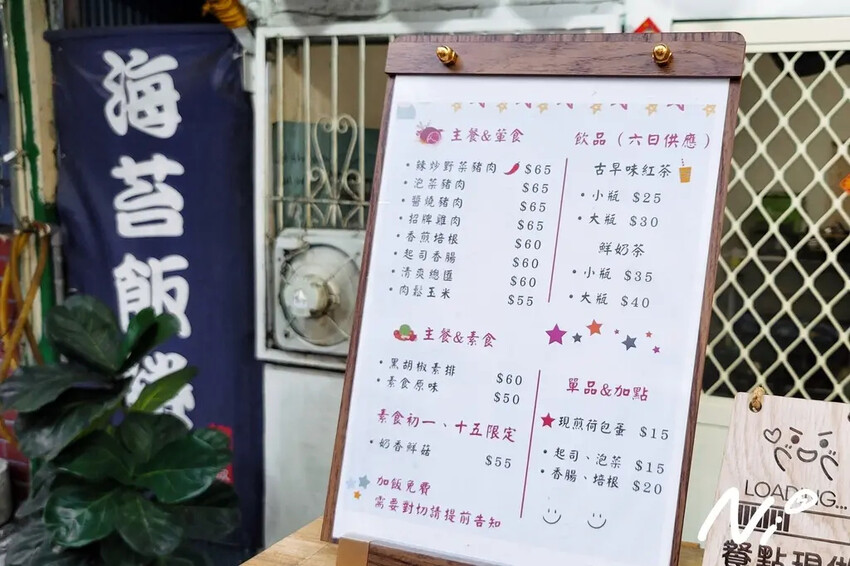 海苔飯捲
主餐&葷食
• 辣炒野菜豬肉 $65
• 泡菜豬肉 $65
• 醬燒豬肉 $65
• 招牌雞肉 $65
• 香煎培根 $60
• 起司香腸 $60
• 清爽總匯 $60
• 肉鬆玉米 $55
主餐&素食
• 黑胡椒素排 $60
• 素食原味 $50
素食初一、十五限定
• 奶香鮮菇 $55
加飯免費
需要對切請提前告知
飲品（六日供應）
古早味紅茶
• 小瓶 $25
• 大瓶 $30
鮮奶茶
• 小瓶 $35
• 大瓶 $40
單品&加點
現煎荷包蛋 $15
• 起司、泡菜 $15
• 香腸、培根 $20
LOADING...
餐點現做